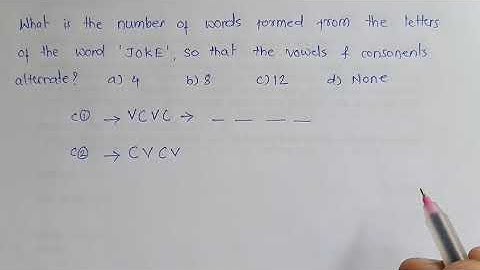 What is the number of words formed from the letters
of the word 'JOKE', so that the vowels & consonents
alternate? a) 4 b) 8 c) 12 d) None
C① → V C V C → _ _ _ _
C② → C V C V